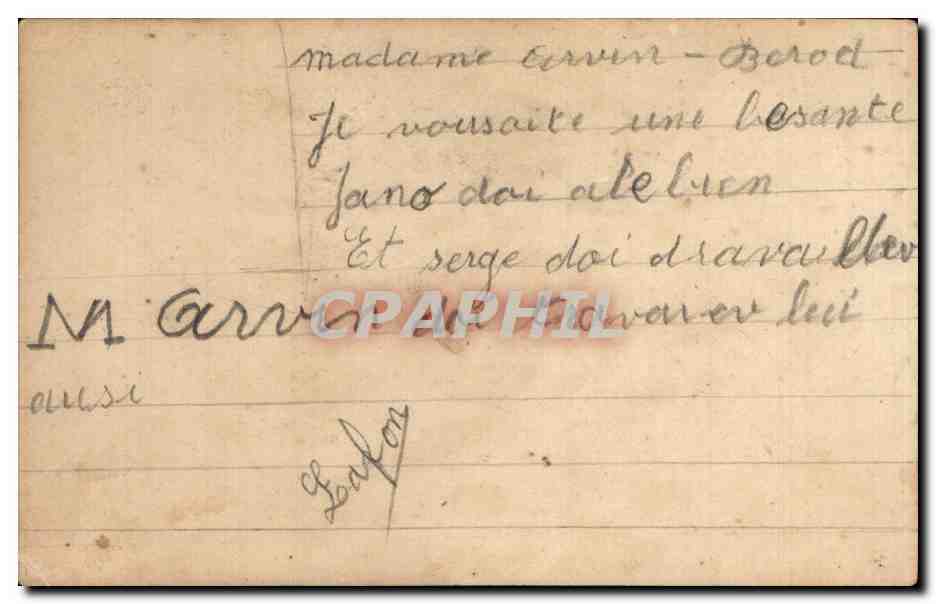 madame Arvin - Berod
Je vousaite une besante
Jano doi alé bien
Et serge doi dravailler
M Arvin doi travarer lui
ausi
Lafon
CPAPHIL